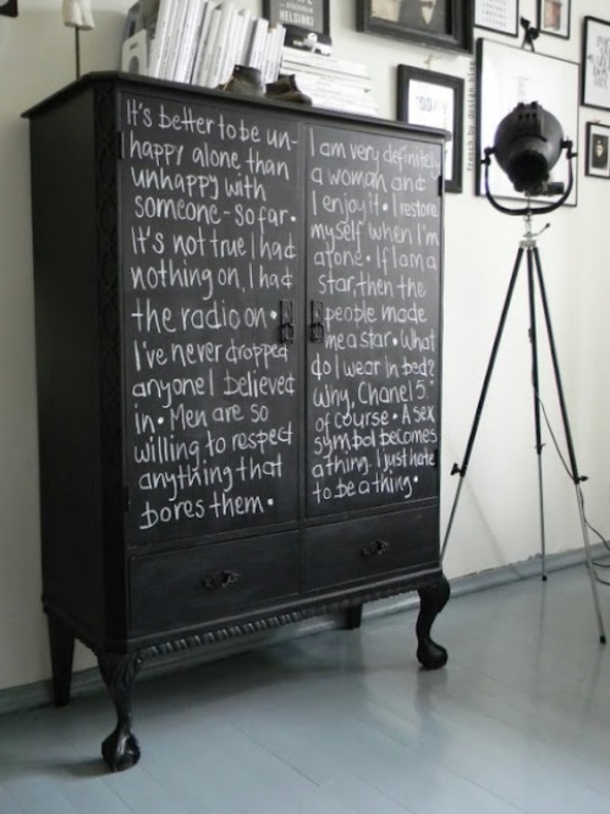 HELSINKI
french by design blog
It's better to be un-
happy alone than
unhappy with
someone - so far •
It's not true I had
nothing on, I had
the radio on •
I've never dropped
anyone I believed
in • Men are so
willing to respect
anything that
bores them •
I am very definitely
a woman and
I enjoy it • I restore
myself when I'm
alone • If I am a
star, then the
people made
me a star • What
do I wear in bed?
Why, Chanel 5
of course • A sex
symbol becomes
a thing. I just hate
to be a thing •